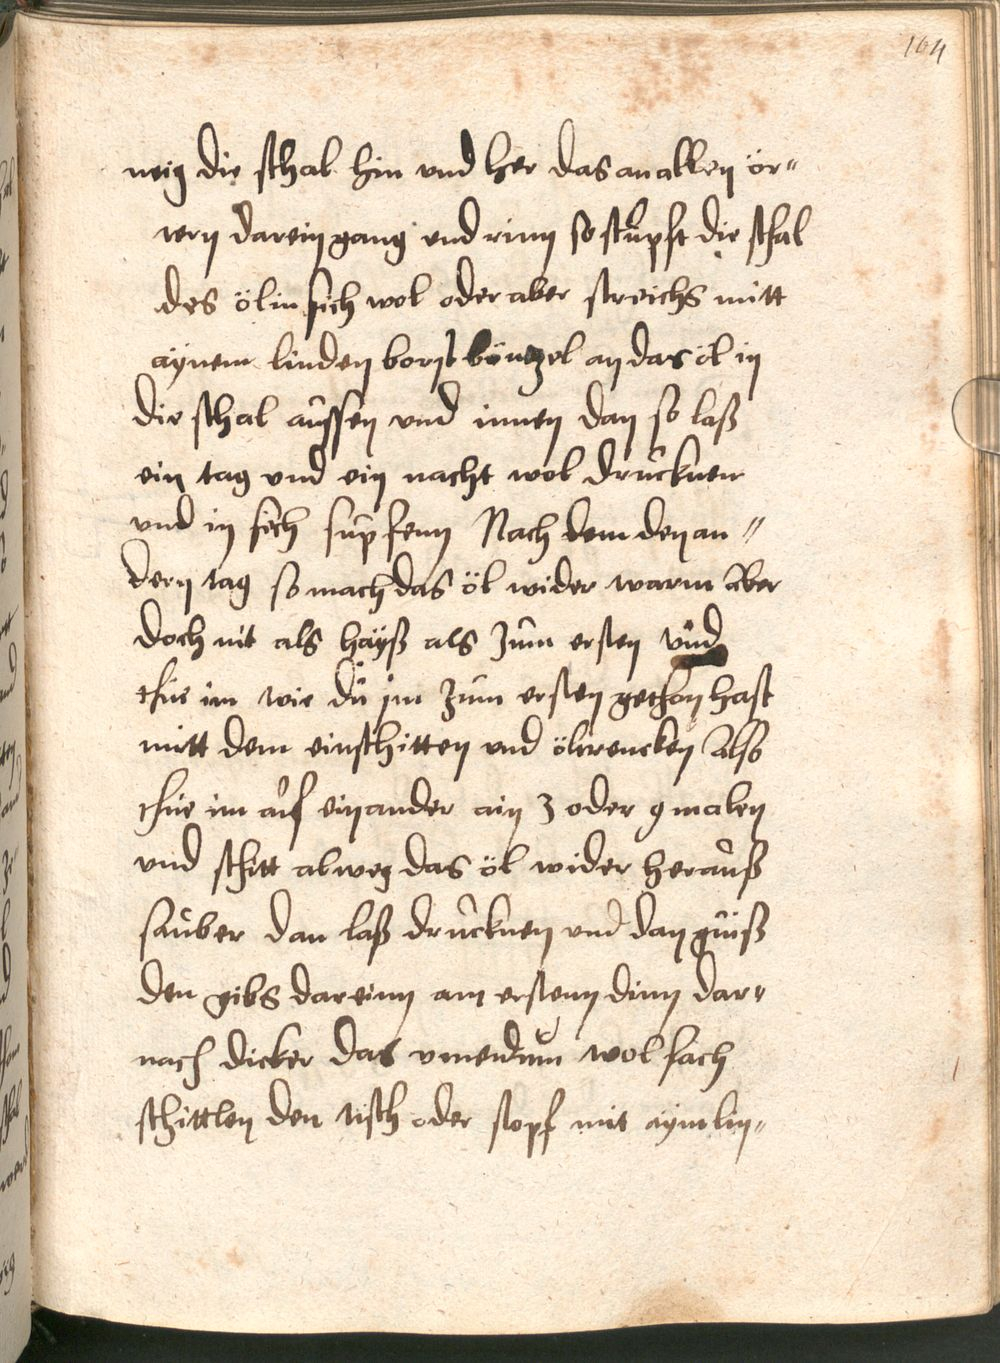 164
neig die schal hin vnd her das an allen ör„
tern darein gang vnd rinn so stupft die schal
des öl in sich wol oder aber streichs mitt
aÿnem linden borst bÿntzel an das öl in
die schal aussen vnd innen dan so laß
ein tag vnd ein nacht wol drucknen
vnd in sich supfenn Nach dem den an„
dern tag so mach das öl wider warm aber
doch nit als haÿß als zum ersten vnd
thue im wie du jm zum ersten gethon hast
mitt dem einschitten vnd öltrencken Also
thue im auf ein ander ain 3 oder 9 malen
vnd schitt alweg das öl wider herauß
sauber dan laß drucknen vnd dan guiß
den gibs dareinn am erstenn dinn dar„
nach dicker das vmendum wol fach
schittlen den tisch oder stopf mit aÿm lin„